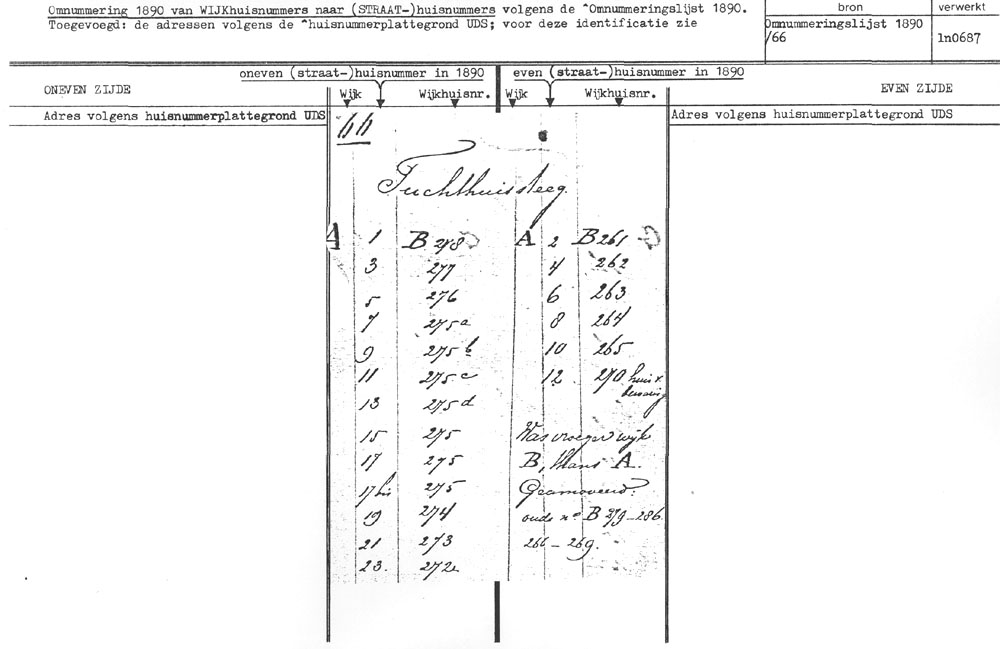 Omnummering 1890 van WIJKhuisnummers naar (STRAAT-)huisnummers volgens de ^Omnummeringslijst 1890.
Toegevoegd: de adressen volgens de ^huisnummerplattegrond UDS; voor deze identificatie zie
bron
verwerkt
Omnummeringslijst 1890
/66
ln0687
oneven (straat-)huisnummer in 1890
even (straat-)huisnummer in 1890
ONEVEN ZIJDE
Wijk
Wijkhuisnr.
Wijk
Wijkhuisnr.
EVEN ZIJDE
Adres volgens huisnummerplattegrond UDS
Adres volgens huisnummerplattegrond UDS
66
Tuchthuissteeg.
A 1 B 278 A 2 B 261
3 277 4 262
5 276 6 263
7 275a 8 264
9 275b 10 265
11 275c 12 270 huis v. bewaring
13 275d
15 275 Was vroeger wijk
17 275 B, thans A.
17bis 275 Geamoveerd:
19 274 oude no B 279-286
21 273 266-269.
23 272